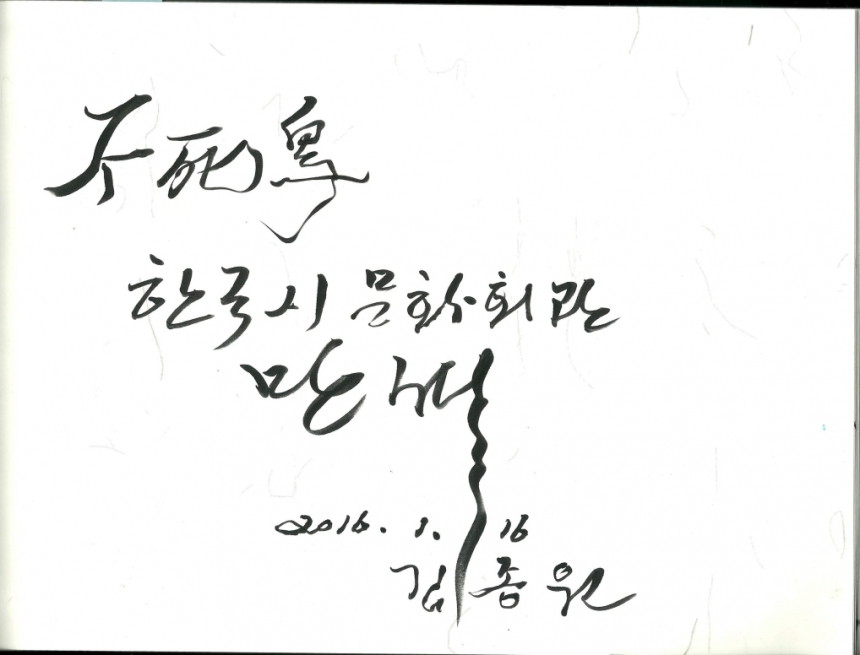 不死鳥
한국시 문화회관
만세
2016. 1. 16
김종원